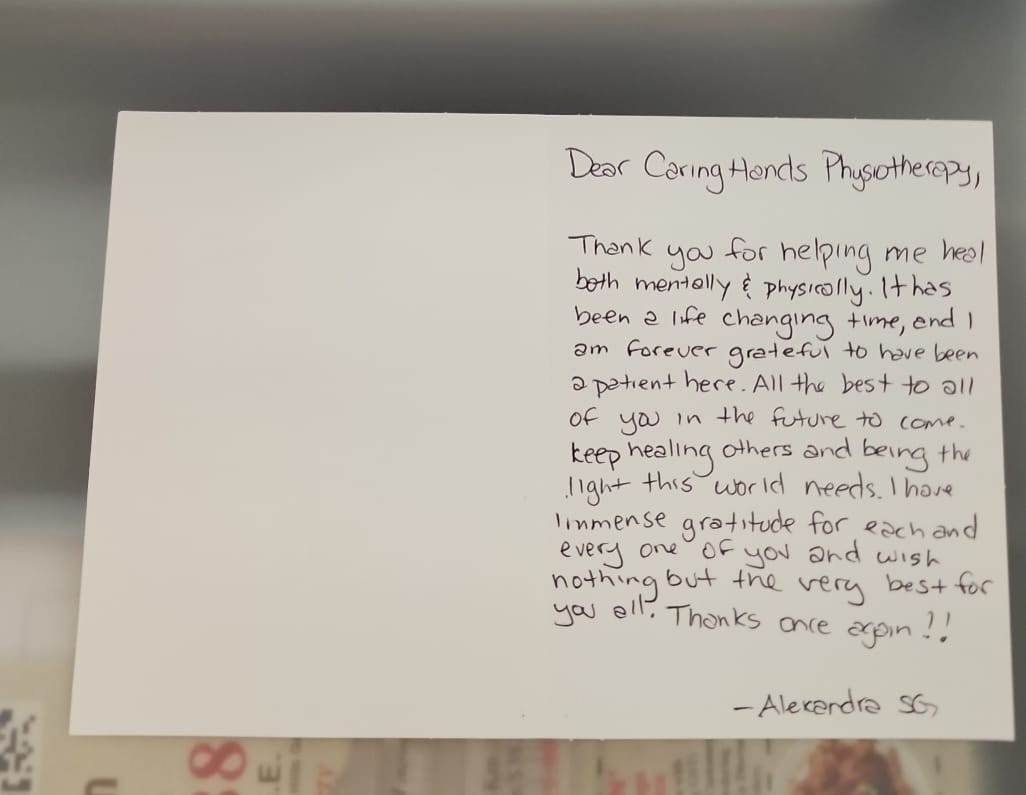 Dear Caring Hands Physiotherapy,
Thank you for helping me heal
both mentally & physically. It has
been a life changing time, and I
am forever grateful to have been
a patient here. All the best to all
of you in the future to come.
Keep healing others and being the
light this world needs. I have
immense gratitude for each and
every one of you and wish
nothing but the very best for
you all. Thanks once again!!
- Alexandra SG
8
.E.